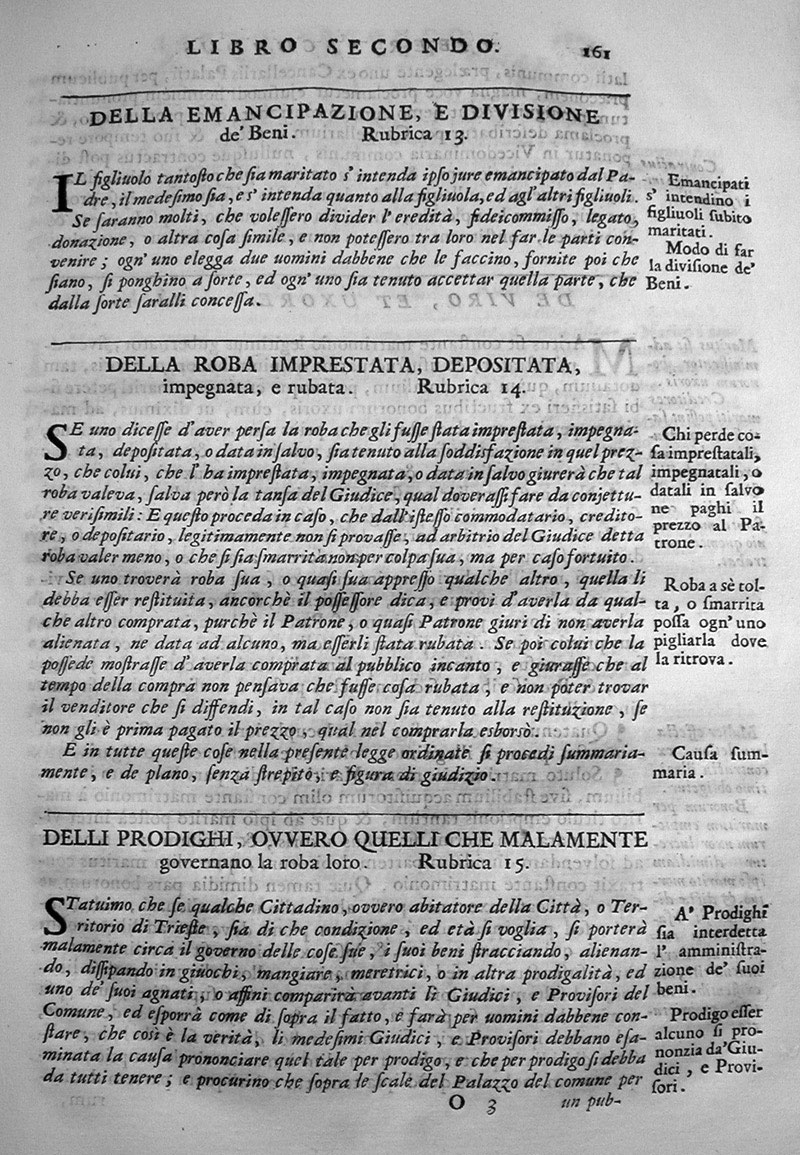 LIBRO SECONDO.
161
DELLA EMANCIPAZIONE, E DIVISIONE
de' Beni. Rubrica 13.
IL figliuolo tantoſto che ſia maritato s' intenda ipſo jure emancipato dal Pa-
dre, il medeſimo ſia, e s' intenda quanto alla figliuola, ed agl' altri figliuoli.
Se ſaranno molti, che voleſſero divider l' eredità, fideicommiſſo, legato,
donazione, o altra coſa ſimile, e non poteſſero tra loro nel far le parti con-
venire; ogn' uno elegga due uomini dabbene che le faccino, fornite poi che
ſiano, ſi ponghino a ſorte, ed ogn' uno ſia tenuto accettar quella parte, che
dalla ſorte ſaralli conceſſa.
Emancipati
s' intendino i
figliuoli ſubito
maritati.
Modo di far
la diviſione de'
Beni.
DELLA ROBA IMPRESTATA, DEPOSITATA,
impegnata, e rubata. Rubrica 14.
SE uno diceſſe d'aver perſa la roba che gli fuſſe ſtata impreſtata, impegna-
ta, depoſitata, o data in ſalvo, ſia tenuto alla ſoddisfazione in quel prez-
zo, che colui, che l' ha impreſtata, impegnata, o data in ſalvo giurerà che tal
roba valeva, ſalva però la tanſa del Giudice, qual doveraſſi fare da conjettu-
re veriſimili: E queſto proceda in caſo, che dall' iſteſſo commodatario, credito-
re, o depoſitario, legitimamente non ſi provaſſe, ad arbitrio del Giudice detta
roba valer meno, o che ſi ſia ſmarrita non per colpa ſua, ma per caſo fortuito.
Se uno troverà roba ſua, o quaſi ſua appreſſo qualche altro, quella li
debba eſſer reſtituita, ancorchè il poſſeſſore dica, e provi d'averla da qual-
che altro comprata, purchè il Patrone, o quaſi Patrone giuri di non averla
alienata, ne data ad alcuno, ma eſſerli ſtata rubata. Se poi colui che la
poſſede moſtraſſe d'averla comprata al pubblico incanto, e giuraſſe che al
tempo della compra non penſava che fuſſe coſa rubata, e non poter trovar
il venditore che ſi diffendi, in tal caſo non ſia tenuto alla reſtituzione, ſe
non gli è prima pagato il prezzo, qual nel comprarla esborsò.
E in tutte queſte coſe nella preſente legge ordinate ſi procedi ſummaria-
mente, e de plano, ſenza ſtrepito, e figura di giudizio.
Chi perde co-
ſa impreſtatali,
impegnatali, o
datali in ſalvo
ne paghi il
prezzo al Pa-
trone.
Roba a sè tol-
ta, o ſmarrita
poſſa ogn' uno
pigliarla dove
la ritrova.
Cauſa ſum-
maria.
DELLI PRODIGHI, OVVERO QUELLI CHE MALAMENTE
governano la roba loro. Rubrica 15.
STatuimo che ſe qualche Cittadino, ovvero abitatore della Città, o Ter-
ritorio di Trieſte, ſia di che condizione, ed età ſi voglia, ſi porterà
malamente circa il governo delle coſe ſue, i ſuoi beni ſtracciando, alienan-
do, diſſipando in giuochi, mangiare, meretrici, o in altra prodigalità, ed
uno de' ſuoi agnati, o affini comparirà avanti li Giudici, e Proviſori del
Comune, ed eſporrà come di ſopra il fatto, e farà per uomini dabbene con-
ſtare, che così è la verità, li medeſimi Giudici, e Proviſori debbano eſa-
minata la cauſa prononciare quel tale per prodigo, e che per prodigo ſi debba
da tutti tenere; e procurino che ſopra le ſcale del Palazzo del comune per
A' Prodighi
ſia interdetta
l' amminiſtra-
zione de' ſuoi
beni.
Prodigo eſſer
alcuno ſi pro-
nonzia da' Giu-
dici, e Provi-
ſori.
O 3
un pub-